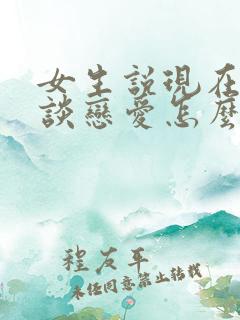 女生説現在
談戀愛怎麽
程友平
未经同意禁止转载